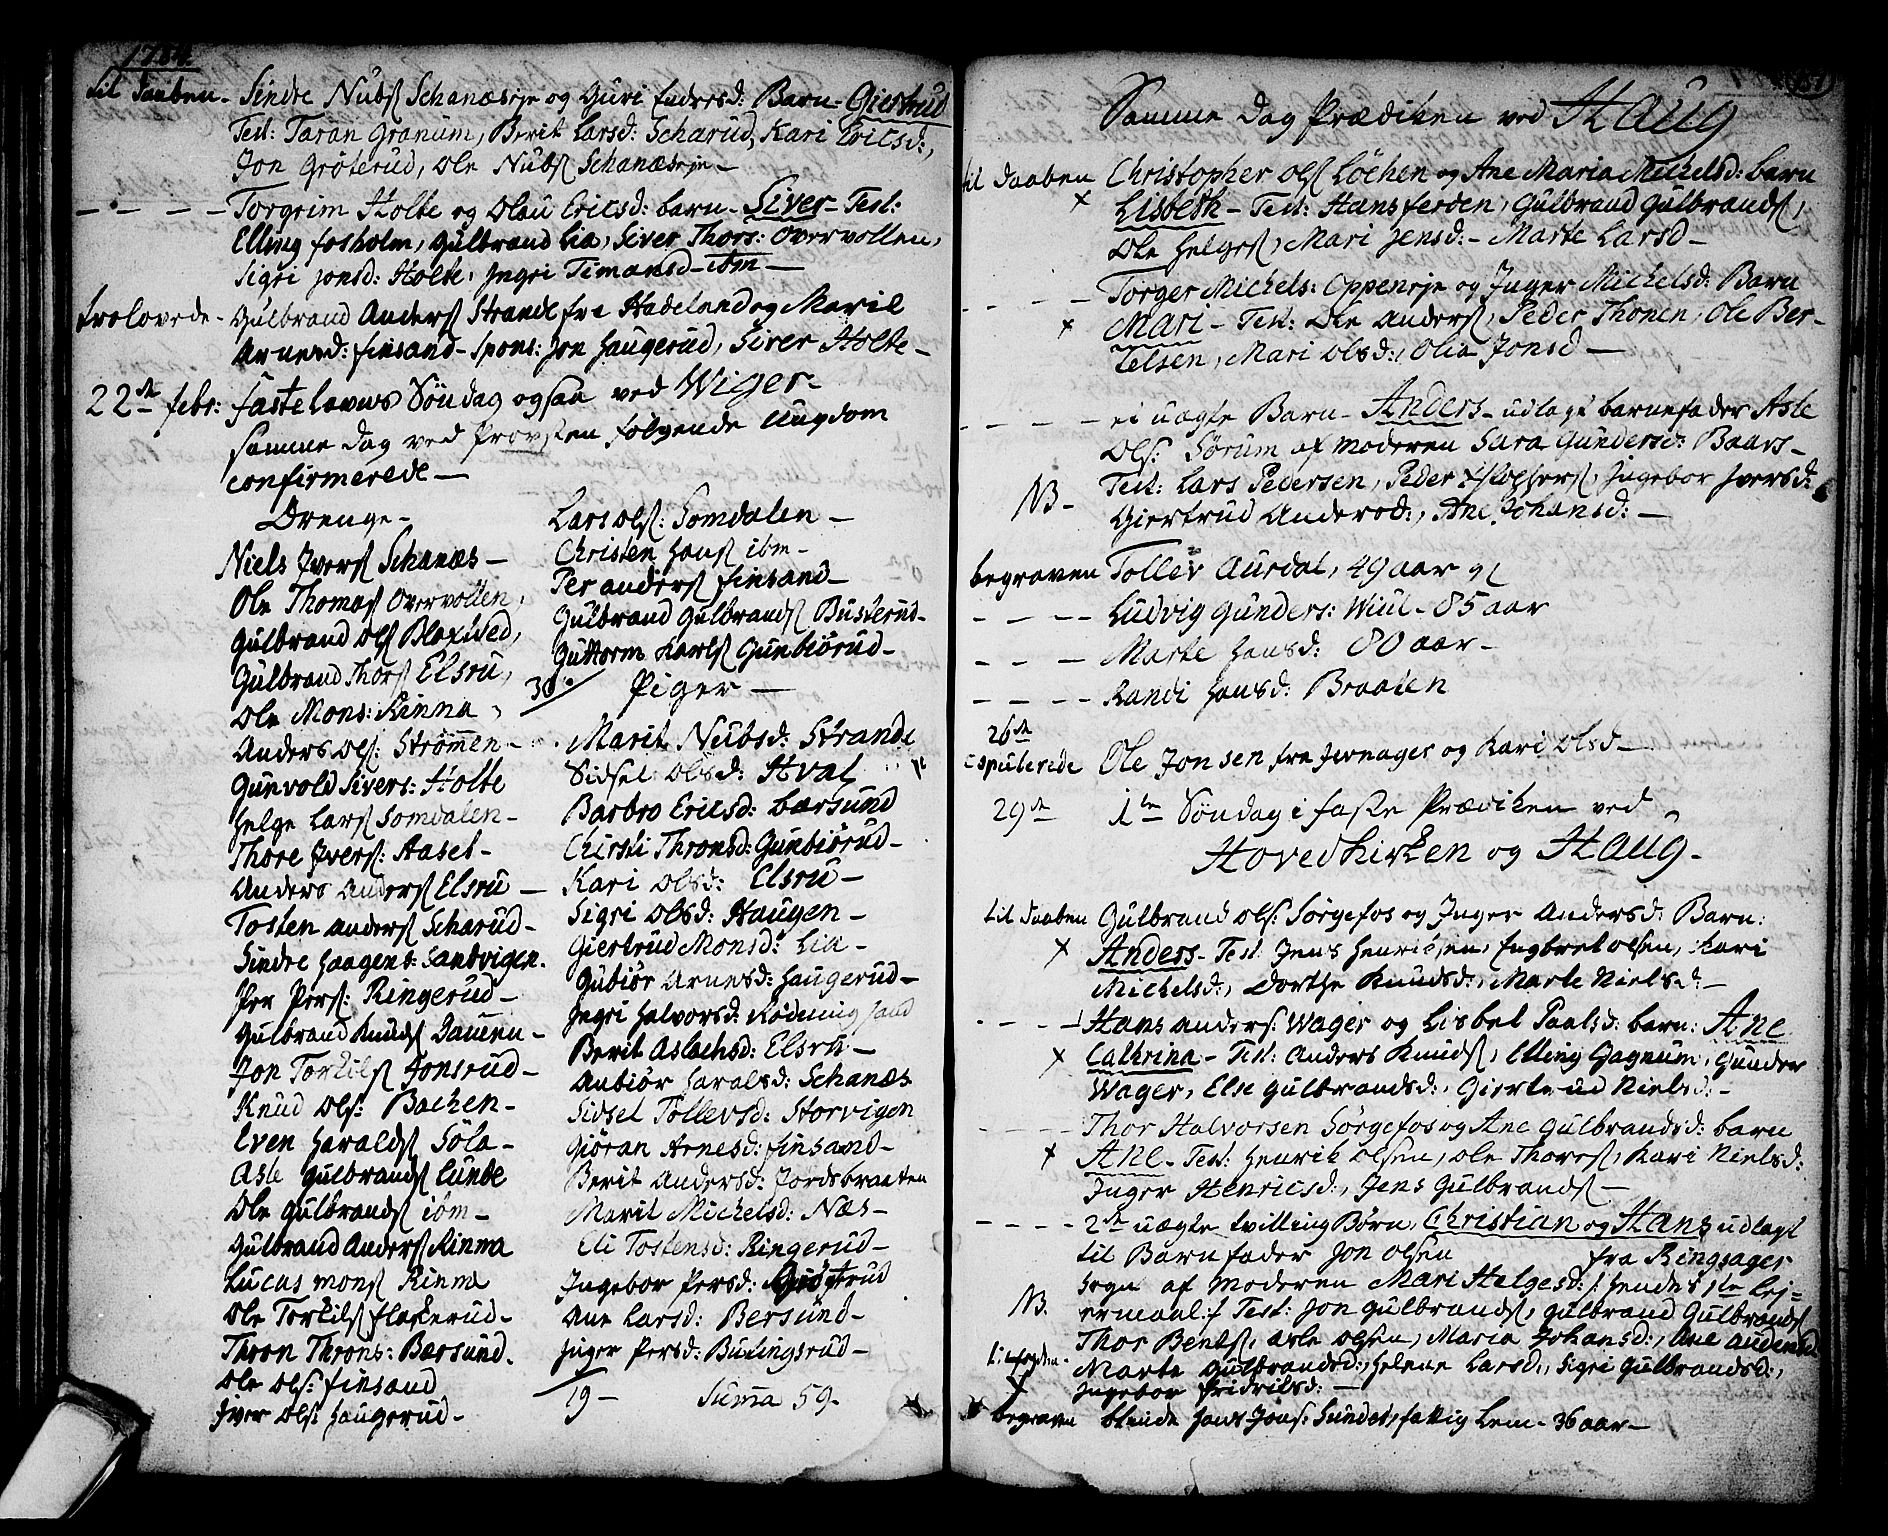 1784.
til Daaben - Sindre Nubs Schanæseje og Guri Endresd: Barn - Giertrud
Test: Taran Granum, Berit Larsd: Scharud, Kari Ericsd:,
Jon Grøterud, Ole Nubs Schanæseje -
- - - - Torgrim Holte og Olau Ericsd: barn - Siver - Test:
Elling fosholm, Gulbrand Lia, Siver Thors: Overvollen,
Sigri Jonsd: Holte, Jngri Timansd - ibm -
trolovede - Gulbrand Anders Strande fra Hadeland og Marit
Arnesd: finsand - Spons: Jon Haugerud, Siver Holte -
22de febr: fastelavns Søndag ogsaa ved Wiger -
Samme Dag ved Provsten følgende Ungdom
confirmerede -
Drenge -
Niels Jvers Schanæs -
Ole Thomas Overvollen,
Gulbrand Ols Blaxved,
Gulbrand Thors Elsru,
Ole Mons: Rinna,
Anders Ols: Strømen -
Gunvold Sivers: Holte
Helge Lars Somdalen -
Thore Jvers: Aaset -
Anders Anders Elsru -
Tosten Anders Scharud -
Sindre Haagens: Sandvigen.
Per Pers: Ringerud -
Gulbrand Knuds Dauen -
Jon Torkils Jonsrud -
Knud Ols: Bachen -
Even Haralds Søla -
Asle Gulbrands Lunde
Ole Gulbrands ibm -
Gulbrand Anders Rinna
Lucas Mons Rinna
Ole Torkils flaskerud -
Thron Throns: Bærsund.
Ole Ols: finsand
Jver Ols: Haugerud -
Lars Ols: Somdalen -
Christen Hans ibm -
Per Anders finsand -
Gulbrand Gulbrands Busterud -
Guttorm Karls Gunbiørud -
30. Piger -
Marit Nubsd: Strande
Sidsel Olsd: Hval
Barbro Ericsd: bærsund
Chirsti Thronsd: Gunbiørud -
Kari Olsd: Elsru -
Sigri Olsd: Haugen -
Giertrud Monsd: Lia -
Gubiør Arnesd: Haugerud -
Jngri Halvorsd: Rødningsand
Berit Aslachsd: Elsru -
Anbiør Haralsd: Schanæs
Sidsel Tollevsd: Storvigen
Giøran Arnesd: finsand -
Berit Andersd: Jordsbraaten
Marit Michelsd: Næs -
Eli Tostensd: Ringerud -
Jngebor Persd: Grøterud
Ane Larsd: Bersund -
Jnger Persd: Butingsrud -
19 - Suma 59.
151
Samme Dag Prædiken ved Haug
til Daaben Christopher Ols Løchen og Ane Maria Michelsd: barn
x Lisbeth - Test: Hans ferden, Gulbrand Gulbrands,
Ole Helges, Mari Jensd: - Marte Larsd -
- - - Torger Michels: Oppeneje og Jnger Michelsd: Barn
x Mari - Test: Ole Anders, Peder Thonen, Ole Ber-
telsen, Mari Olsd:, Olia Jonsd -
- - - - ei uægte Barn - Anders - udlagt barnefader Asle
Ols: Sørum af Moderen Sara Gundersd: Baars -
NB - Test: Lars Pedersen, Peder Xstophers, Jngebor Jversd:
Giertrud Andersd:, Ane Johansd: -
begraven Tollev Aurdal, 49 aar gl
- - - - Ludvig Gunders: Wiul - 85 aar
- - - Marte Hansd: 80 aar -
- - - - Randi Hansd: Braaten
26de
copulerede Ole Jonsen fra Jevnager og Kari Olsd -
29de 1te Søndag i faste Prædiken ved
Hovedkirken og Haug -
til Daaben Gulbrand Ols: Sørgefos og Jnger Andersd: Barn:
x Anders - Test: Jens Henricsen, Engbret Olsen, Kari
Michelsd:, Dorthe Knudsd:, Marte Nielsd: -
- - - - Hans Anders: Wager og Lisbet Paalsd: barn: Ane
x Cathrina - Test: Anders Knuds, Elling Gagnum, Gunder
Wager, Else Gulbrandsd:, Giertrud Nielsd: -
- - - - Thor Halvorsen Sørgefos og Ane Gulbrandsd: barn
x Ane - Test: Henrik Olsen, Ole Thores, Kari Nielsd:
Jnger Henricsd:, Jens Gulbrands -
- - - - 2de uægte tvilling Børn, Christian og Hans udlagt
til Barnfader Jon Olsen fra Ringsager
Sogn af Moderen Mari Helgesd: /: Hendes 1te Lej-
NB. ermaal:/ Test: Jon Gulbrands, Gulbrand Gulbrands
Thor Bents, Asle Olsen, Maria Johansd:, Ane Andersd
Marte Gulbrandsd:, Helene Larsd:, Sigri Gulbrandsd:,
Jngebor fridrilsd: -
begraven blinde Hans Jons: Sundet, fattig Lem - 36 aar -